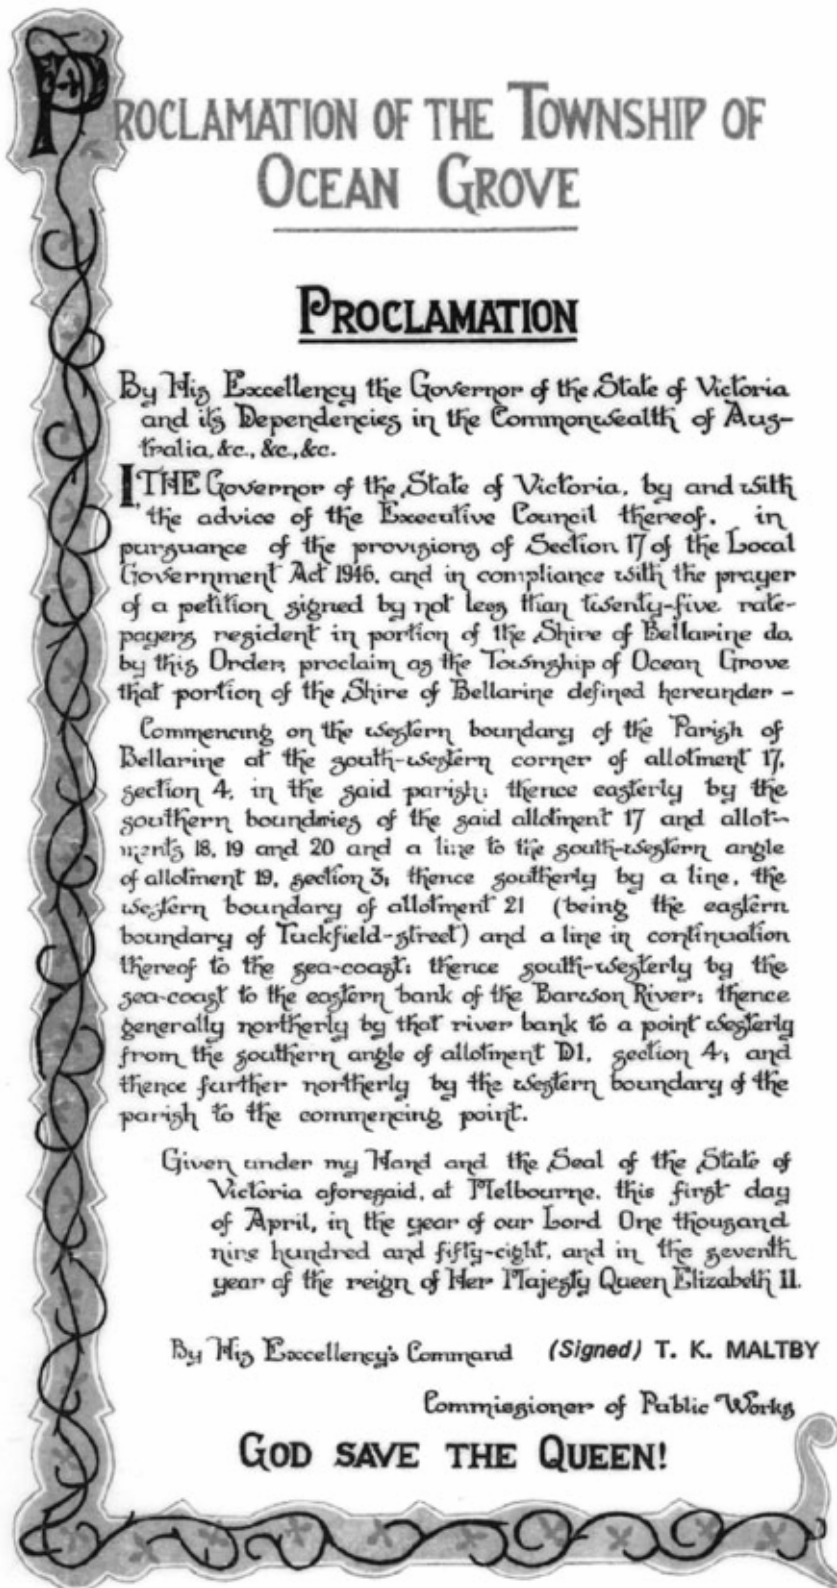 PROCLAMATION OF THE TOWNSHIP OF
OCEAN GROVE
PROCLAMATION
By His Excellency the Governor of the State of Victoria
and its Dependencies in the Commonwealth of Aus-
tralia, &c., &c., &c.
I THE Governor of the State of Victoria, by and with
the advice of the Executive Council thereof, in
pursuance of the provisions of Section 17 of the Local
Government Act 1946, and in compliance with the prayer
of a petition signed by not less than twenty-five rate-
payers resident in portion of the Shire of Bellarine do,
by this Order, proclaim as the Township of Ocean Grove
that portion of the Shire of Bellarine defined hereunder -
Commencing on the western boundary of the Parish of
Bellarine at the south-western corner of allotment 17,
section 4, in the said parish; thence easterly by the
southern boundaries of the said allotment 17 and allot-
ments 18, 19 and 20 and a line to the south-western angle
of allotment 19, section 3; thence southerly by a line, the
western boundary of allotment 21 (being the eastern
boundary of Tuckfield-street) and a line in continuation
thereof to the sea-coast; thence south-westerly by the
sea-coast to the eastern bank of the Barwon River; thence
generally northerly by that river bank to a point westerly
from the southern angle of allotment D1, section 4; and
thence further northerly by the western boundary of the
parish to the commencing point.
Given under my Hand and the Seal of the State of
Victoria aforesaid, at Melbourne, this first day
of April, in the year of our Lord One thousand
nine hundred and fifty-eight, and in the seventh
year of the reign of Her Majesty Queen Elizabeth II.
By His Excellency's Command (Signed) T. K. MALTBY
Commissioner of Public Works
GOD SAVE THE QUEEN!